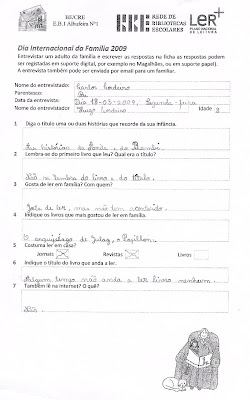 BECRE
E.B.1 Albufeira Nº1
REDE DE
BIBLIOTECAS
ESCOLARES
LER+
PLANO NACIONAL
DE LEITURA
Dia Internacional da Família 2009
Entrevistar um adulto da família e escrever as respostas na ficha as respostas podem
ser registadas em suporte digital, por exemplo no Magalhães, ou em suporte papel).
A entrevista também pode ser enviada por email para um familiar.
Nome do entrevistado: Carlos Cordeiro
Parentesco: Pai
Data da entrevista: Dia 18-05-2009, Segunda-feira
Nome do entrevistador: Hugo Cordeiro Idade 8
1 Diga o título uma ou duas histórias que recorde da sua infância.
As histórias da e do Bambi
2 Lembra-se do primeiro livro que leu? Qual era o título?
Não se lembra do livro e do título.
3 Gosta de ler em família? Com quem?
Gosta de ler, mas não tem
4 Indique os livros que mais gostou de ler em família.
O arquipélago de Gulag, o Papillon.
5 Costuma ler em casa?
Jornais X Revistas X Livros
6 Indique o título do livro que anda a ler.
Algum tempo não anda a ler livro nenhum.
7 Também lê na internet? O quê?
Não.